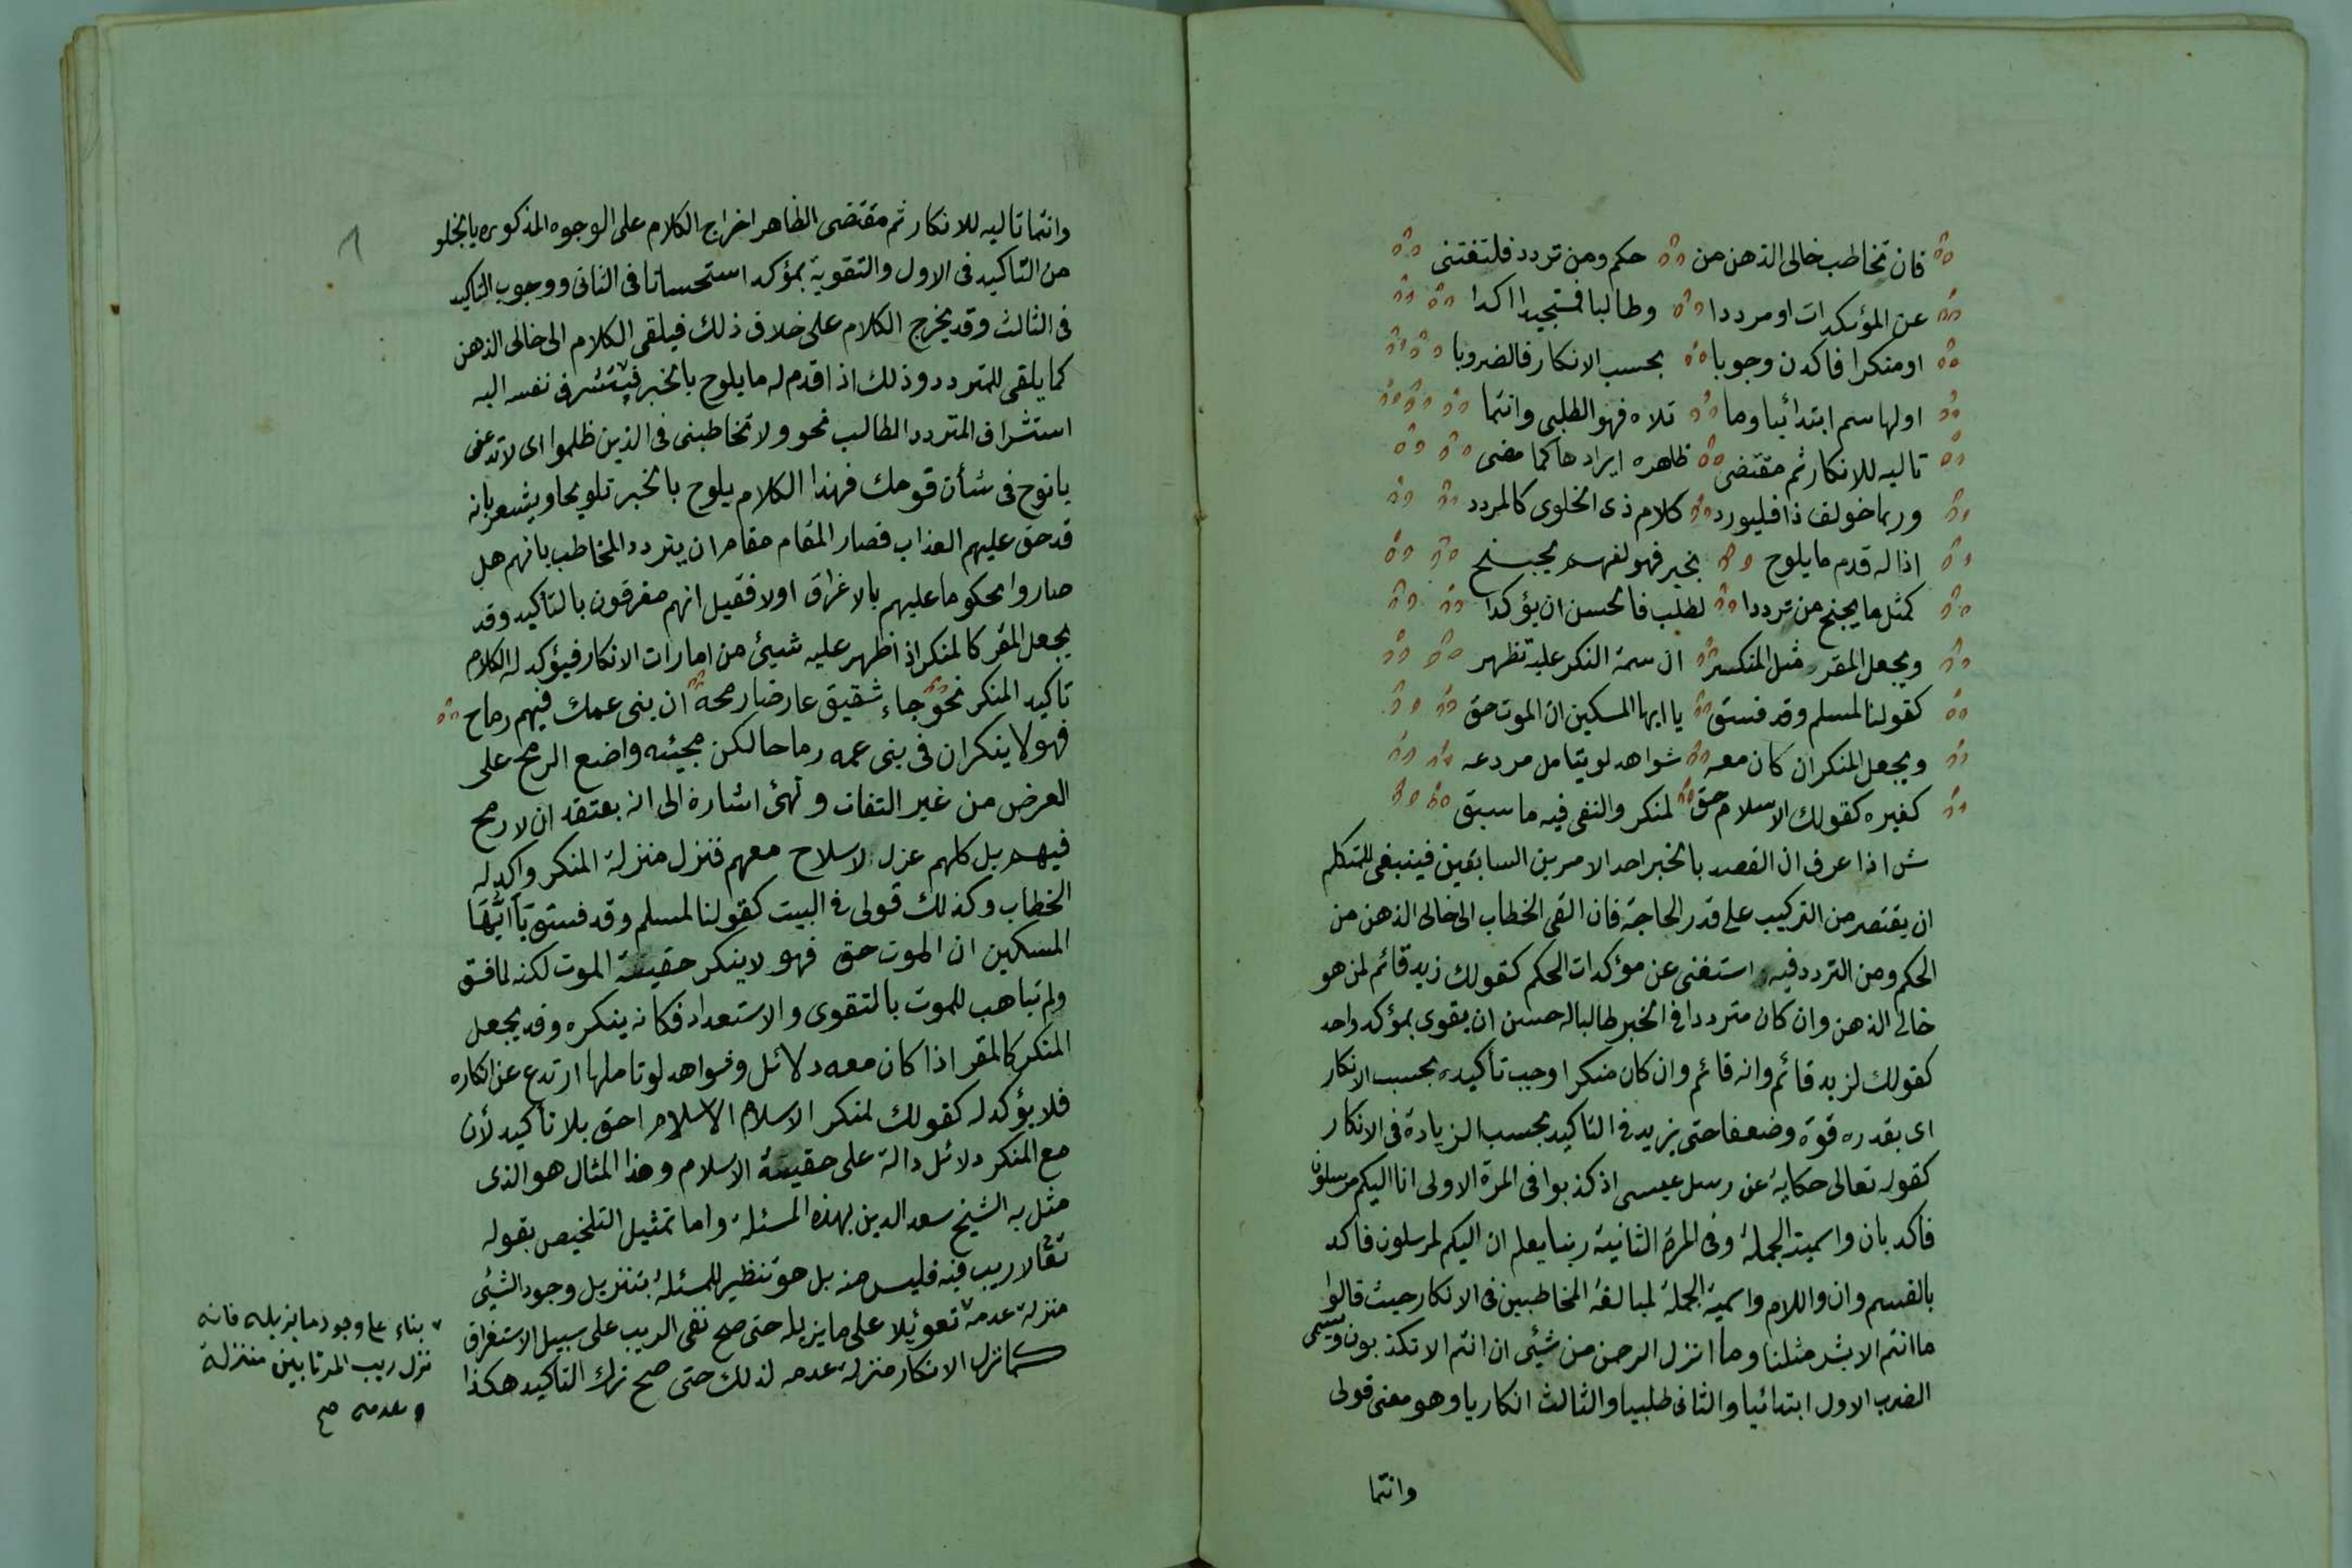 فان تخاطب خالى الذهن من حكم ومن تردد فلتغتنى
عن المؤكدات او مرددا وطالبا فمستجيدا اكدا
او منكرا فاكدن وجوبا بحسب الانكار فالضروبا
اولها سم ابتدائيا وما تلاه فهو الطلبى وانتما
تاليه للانكار ثم مقتضى ظاهره ايرادها كما مضى
وربما خولف ذا فليورد كلام ذى الخلوى كالمردد
اذا له قدم ما يلوح بخبر فهو لفهم يجنح
كمثل ما يجنح من ترددا لطلب فالحسن ان يؤكدا
ويجعل المقر مثل المنكر ان سمة النكر عليه تظهر
كقولنا لمسلم وقد فسق يا ايها المسكين ان الموت حق
ويجعل المنكر ان كان معه شواهد لو يتامل مردعه
كغيره كقولك الاسلام حق لمنكر والنفى فيه ما سبق
ش اذا عرف ان القصد بالخبر احد الامرين السابقين فينبغى للمتكلم
ان يقتصر من التركيب على قدر الحاجة فان القى الخطاب الى خالى الذهن من
الحكم ومن التردد فيه استغنى عن مؤكدات الحكم كقولك زيد قائم لمن هو
خالى الذهن وان كان مترددا فى الخبر طالبا له حسن ان يقوى بمؤكد واحد
كقولك لزيد قائم وانه قائم وان كان منكرا وجب تأكيده بحسب الانكار
اى بقدره قوة وضعفا حتى يزيد فى التاكيد بحسب الزيادة فى الانكار
كقوله تعالى حكاية عن رسل عيسى اذ كذبوا فى المرة الاولى انا اليكم مرسلون
فاكد بان واسمية الجملة وفى المرة الثانية ربنا يعلم ان اليكم لمرسلون فاكد
بالقسم وان واللام واسمية الجملة لمبالغة المخاطبين فى الانكار حيث قالوا
ما انتم الا بشر مثلنا وما انزل الرحمن من شيئى ان انتم الا تكذبون ويسمى
الضرب الاول ابتدائيا والثانى طلبيا والثالث انكاريا وهو معنى قولى
وانتما
وانتما تاليه للانكار ثم مقتضى الظاهر اخراج الكلام على الوجوه المذكوره بالخلو
من التاكيد فى الاول والتقوية بمؤكد استحسانا فى الثانى ووجوب التاكيد
فى الثالث وقد يخرج الكلام على خلاف ذلك فيلقى الكلام الى خالى الذهن
كما يلقى للمتردد وذلك اذا قدم له ما يلوح بالخبر فيستشرف نفسه اليه
استشراف المتردد الطالب نحو ولا تخاطبنى فى الذين ظلموا اى لا تدعنى
يا نوح فى شأن قومك فهذا الكلام يلوح بالخبر تلويحا ويشعر بانه
قد حق عليهم العذاب فصار المقام مقام ان يتردد المخاطب بانهم هل
صاروا محكوما عليهم بالاغراق او لا فقيل انهم مغرقون بالتأكيد وقد
يجعل المقر كالمنكر اذا ظهر عليه شيئ من امارات الانكار فيؤكد له الكلام
تاكيد المنكر نحو جاء شقيق عارضا رمحه ان بنى عمك فيهم رماح
فهو لا ينكر ان فى بنى عمه رماحا لكن مجيئه واضع الرمح على
العرض من غير التفات وتهئ اشارة الى انه يعتقد ان لا رمح
فيهم بل كلهم عزل لا سلاح معهم فنزل منزلة المنكر واكد له
الخطاب وكذلك قولى فى البيت كقولنا لمسلم وقد فسق يا ايها
المسكين ان الموت حق فهو لا ينكر حقيقة الموت لكنه لما فسق
ولم تباهب للموت بالتقوى والاستعداد فكانه ينكره وقد يجعل
المنكر كالمقر اذا كان معه دلائل وشواهد لو تاملها ارتدع عن انكاره
فلا يؤكد له كقولك لمنكر الاسلام الاسلام احق بلا تأكيد لأن
مع المنكر دلائل دالة على حقيقة الاسلام وهذا المثال هو الذى
مثل به الشيخ سعد الدين لهذه المسئلة واما تمثيل التلخيص بقوله
تعا لا ريب فيه فليس منه بل هو تنظير للمسئلة بتنزيل وجود الشيئى
منزلة عدمه تعويلا على ما يزيله حتى صح نفى الريب على سبيل الاستغراق
كما نزل الانكار منزلة عدمه لذلك حتى صح ترك التاكيد هكذا
بناء على وجود ما يزيله فانه
نزل ريب المرتابين منزلة
عدمه صح